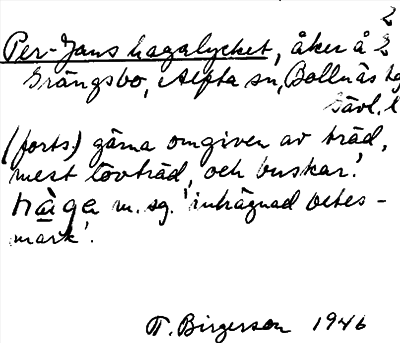 2
Per-Jans hagalycket, åker å 2
Grängsbo, Alfta sn, Bollnäs
Gävl. l
(forts.) gärna omgiven av träd,
mest lövträd, och buskar.'
m. sg. 'inhägnad betes-
mark'.
T. Birgerson 1946